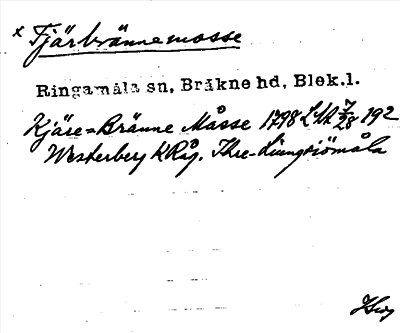 x Tjärbrännemosse
Ringamåla sn, Bräkne hd, Blek.l.
Kjäre=Bränne Måsse 1798 LSA 7/28 192
Westerberg KRåg. Thre-Liungsiömåla